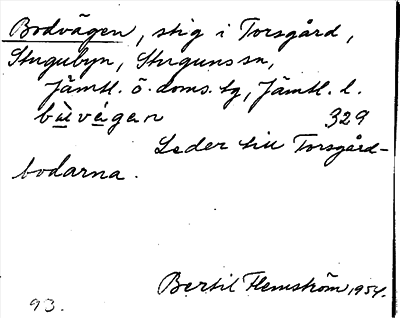 Bodvägen, stig i Torsgård,
Stugubyn, Stuguns sn,
Jämtl. ö. doms. tg, Jämtl. l.
bùvégan 329
Leder till Torsgård-
bodarna.
Bertil Flemström, 1954.
93.